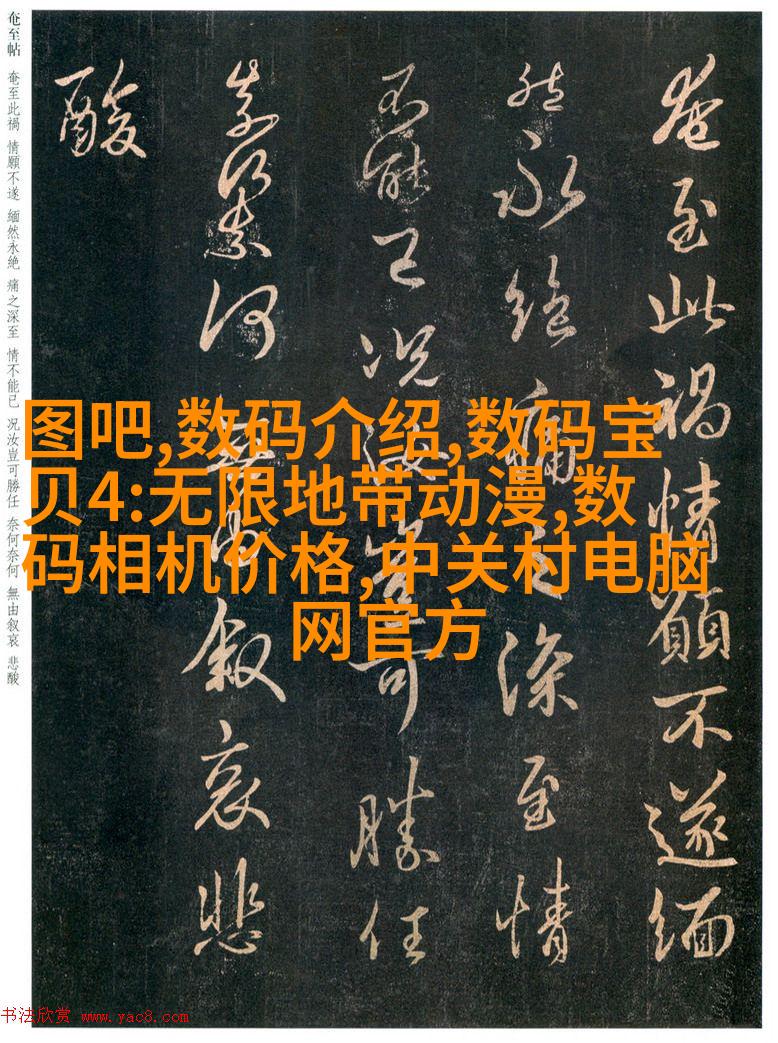 奄至帖 奄至此禍 情願不遂 緬然永絶 痛之深至 情不能已 况汝豈可勝任 奈何奈何 無由叙哀 悲酸
奄至此禍情願不遂緬
然永絶痛之深至情
不能已况汝豈可勝任
奈何奈何無由叙哀悲
酸
图吧,数码介绍,数码宝
贝4:无限地带动漫,数
码相机价格,中关村电脑
网官方
书法欣赏 www.yac8.com